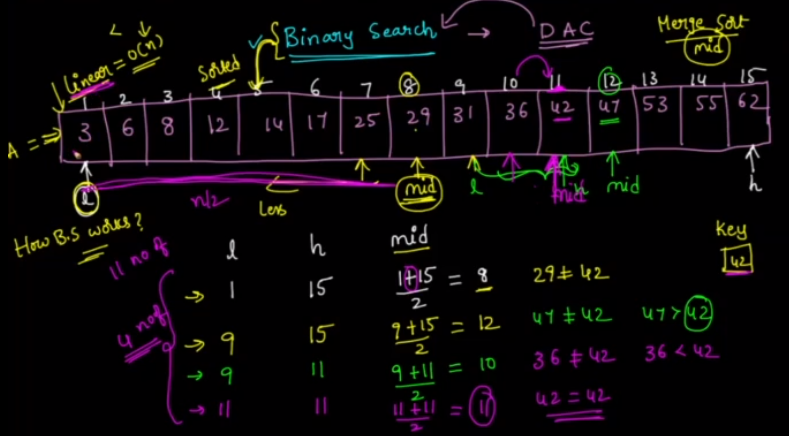 < Binary Search → DAC Merge Sort
Linear = O(n) mid
Sorted
1 2 3 4 5 6 7 8 9 10 11 12 13 14 15
A ⇒ 3 6 8 12 14 17 25 29 31 36 42 47 53 55 62
l mid l mid h mid h
n/2 Less
How B.S works?
11 no of l h mid Key
42
→ 1 15 1+15/2 = 8 29 ≠ 42
4 no of → 9 15 9+15/2 = 12 47 ≠ 42 47 > 42
→ 9 11 9+11/2 = 10 36 ≠ 42 36 < 42
→ 11 11 11+11/2 = 11 42 = 42